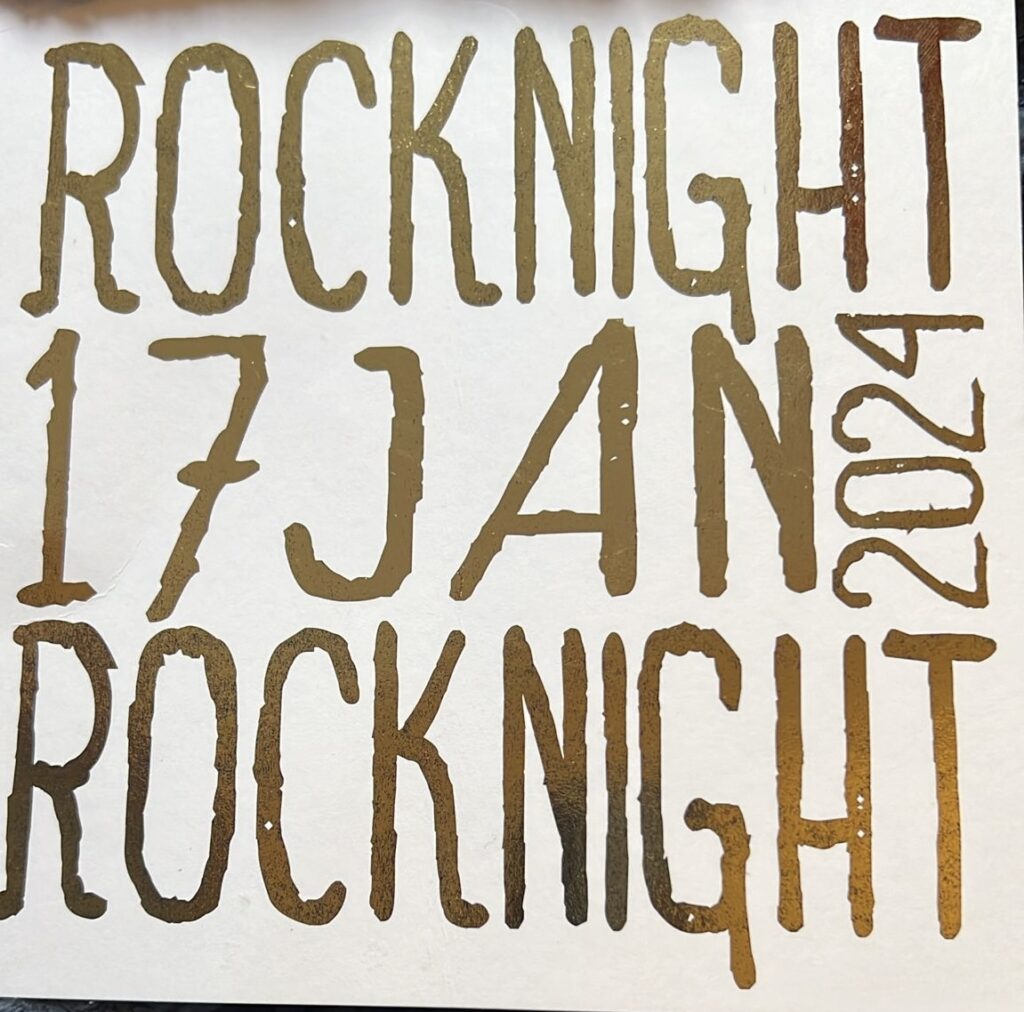 ROCKNIGHT
17JAN 2024
ROCKNIGHT